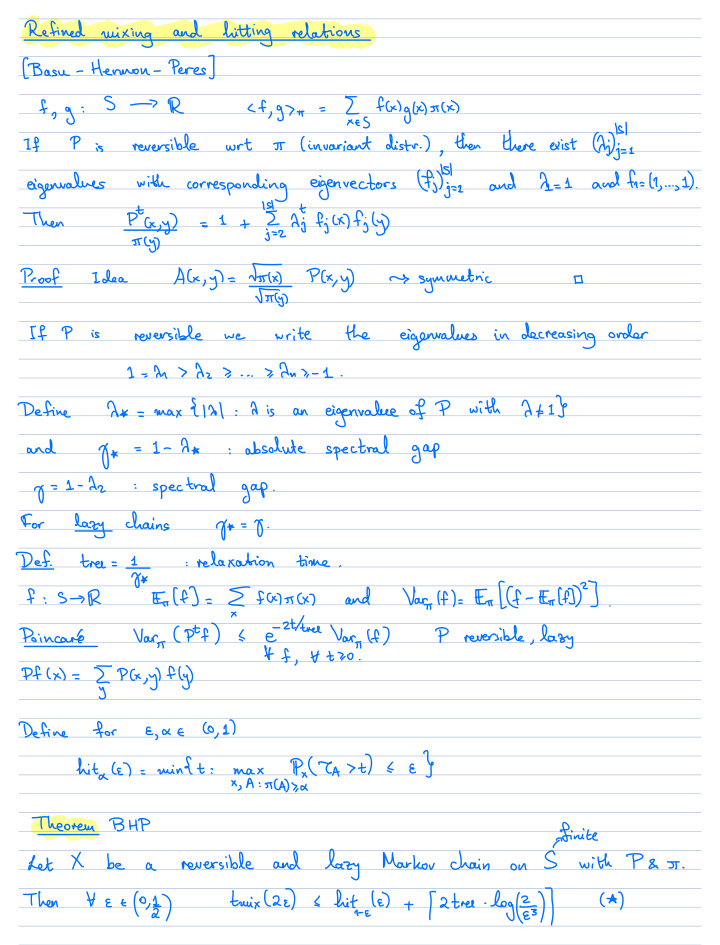 Refined mixing and hitting relations
[Basu - Hermon - Peres]
f, g : S → ℝ <f, g>_π = Σ_{x∈S} f(x)g(x)π(x)
If P is reversible wrt π (invariant distr.), then there exist (λ_j)_{j=1}^{|S|}
eigenvalues with corresponding eigenvectors (f_j)_{j=2}^{|S|} and λ_1=1 and f_1=(1,...,1).
Then P^t(x,y)/π(y) = 1 + Σ_{j=2}^{|S|} λ_j^t f_j(x) f_j(y)
Proof Idea A(x,y) = √π(x)/√π(y) P(x,y) ⤳ symmetric □
If P is reversible we write the eigenvalues in decreasing order
1 = λ_1 > λ_2 ≥ ... ≥ λ_n ≥ -1.
Define λ_* = max {|λ| : λ is an eigenvalue of P with λ≠1}
and γ_* = 1 - λ_* : absolute spectral gap
γ = 1 - λ_2 : spectral gap.
For lazy chains γ_* = γ.
Def. t_rel = 1/γ_* : relaxation time.
f : S→ℝ 𝔼_π[f] = Σ_x f(x)π(x) and Var_π(f) = 𝔼_π[(f - 𝔼_π[f])^2].
Poincaré Var_π(P^t f) ≤ e^{-2t/t_rel} Var_π(f) P reversible, lazy
∀ f, ∀ t≥0.
Pf(x) = Σ_y P(x,y) f(y)
Define for ε, α ∈ (0,1)
hit_α(ε) = min{t : max_{x, A : π(A)≥α} ℙ_x(τ_A > t) ≤ ε}
Theorem BHP
finite
Let X be a reversible and lazy Markov chain on S with P & π.
Then ∀ ε ∈ (0,1/2) t_mix(2ε) ≤ hit_{1-ε}(ε) + ⌈2t_rel · log(2/ε^3)⌉ (*)